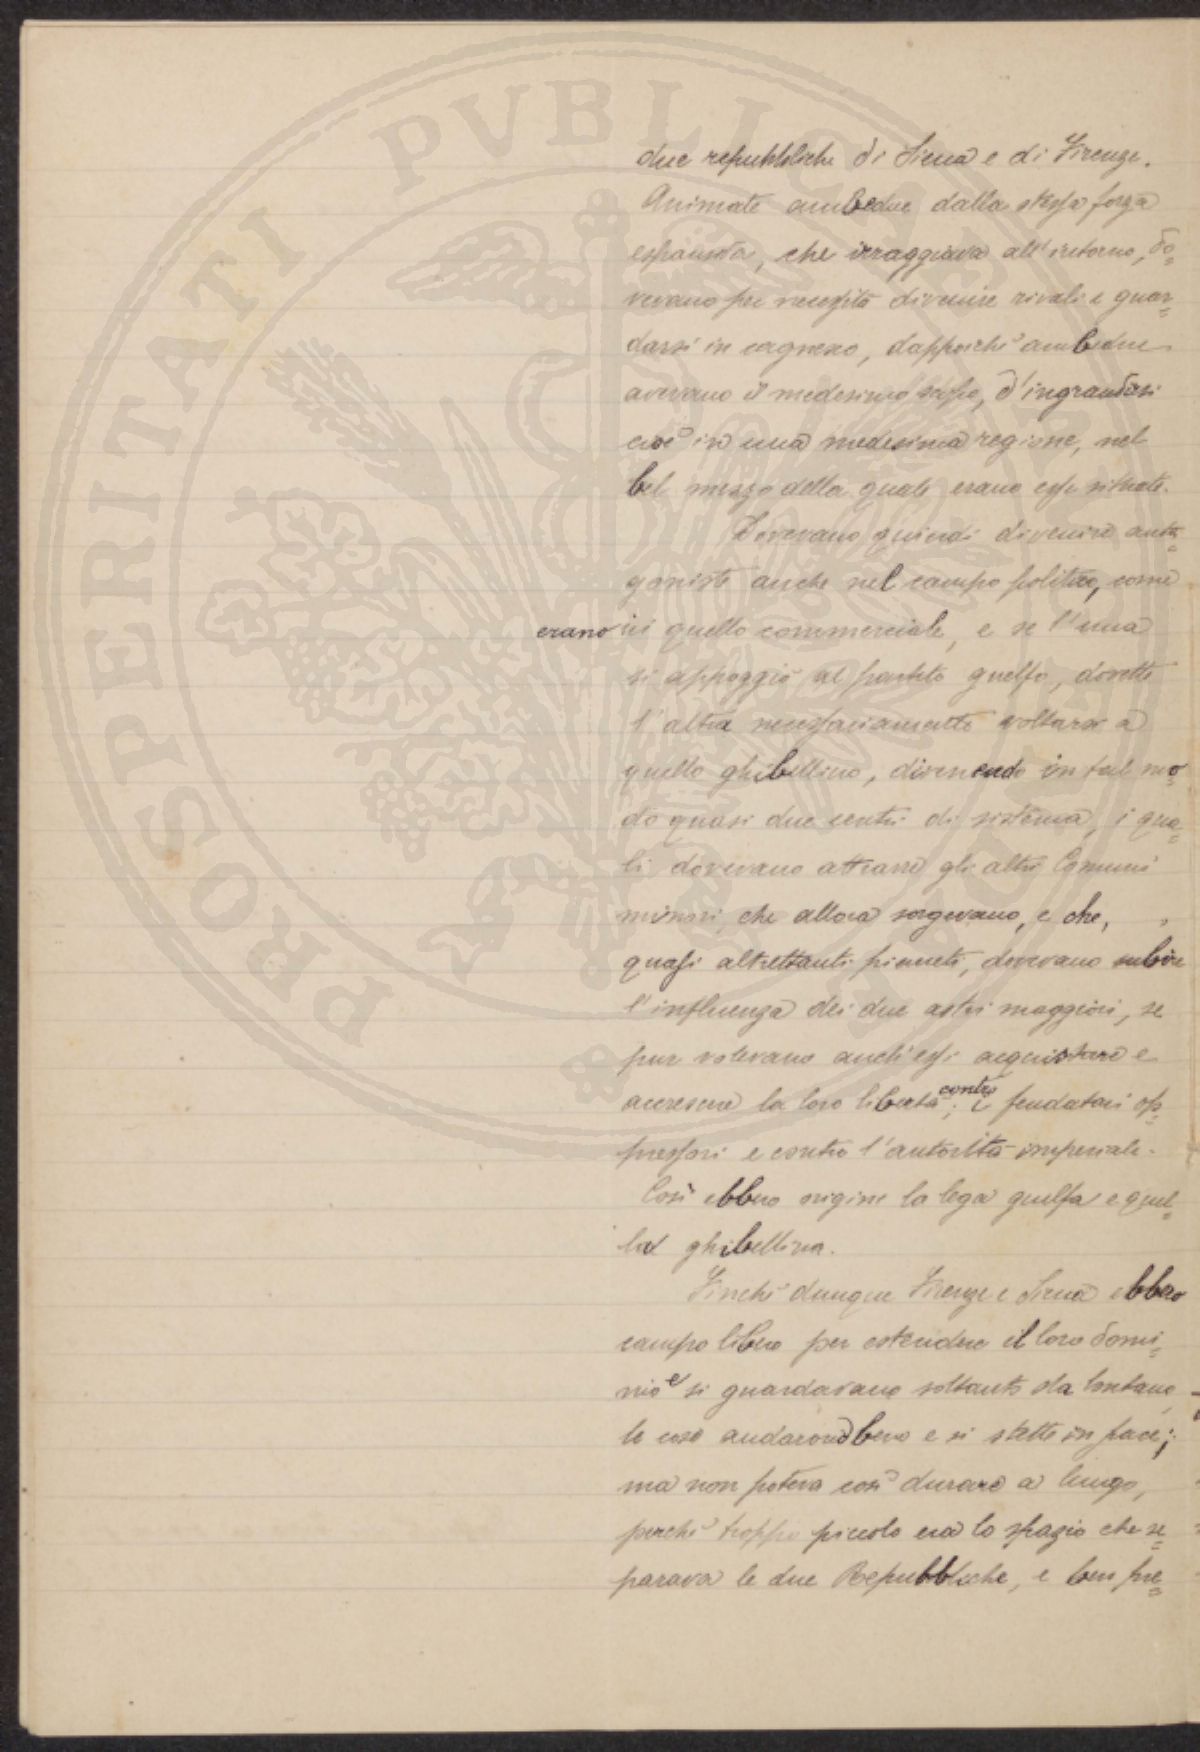 due repubbliche di Siena e di Firenze.
Animate ambedue dalla stessa forza
espansiva, che irraggiava all'intorno, do=
vevano per necessità divenire rivali e guar=
darsi in cagnesco, dappoichè ambedue
avevano il medesimo scopo, d'ingrandirsi
cioè in una medesima regione, nel
bel mezzo della quale erano esse situate.
Dovevano quindi divenire anta=
goniste anche nel campo politico, come
erano in quello commerciale, e se l'una
si appoggiò al partito guelfo, dovette
l'altra necessariamente voltarsi a
quello ghibellino, divenendo in tal mo=
do quasi due centri di sistema, i qua=
li dovevano attrarre gli altri Comuni
minori, che allora sorgevano, e che,
quasi altrettanti pianeti, dovevano subire
l'influenza dei due astri maggiori, se
pur volevano anch'essi acquistare e
accrescere la loro libertà contro i feudatari op=
pressori e contro l'autorità imperiale.
Così ebbero origine la lega guelfa e quel=
la ghibellina.
Finchè dunque Firenze e Siena ebbero
campo libero per estendere il loro domi=
nio e si guardavano soltanto da lontano,
le cose andarono bene e si stette in pace;
ma non poteva così durare a lungo,
perchè troppo piccolo era lo spazio che se=
parava le due Repubbliche, e ben pre=
PROSPERITATI PVBLICAE